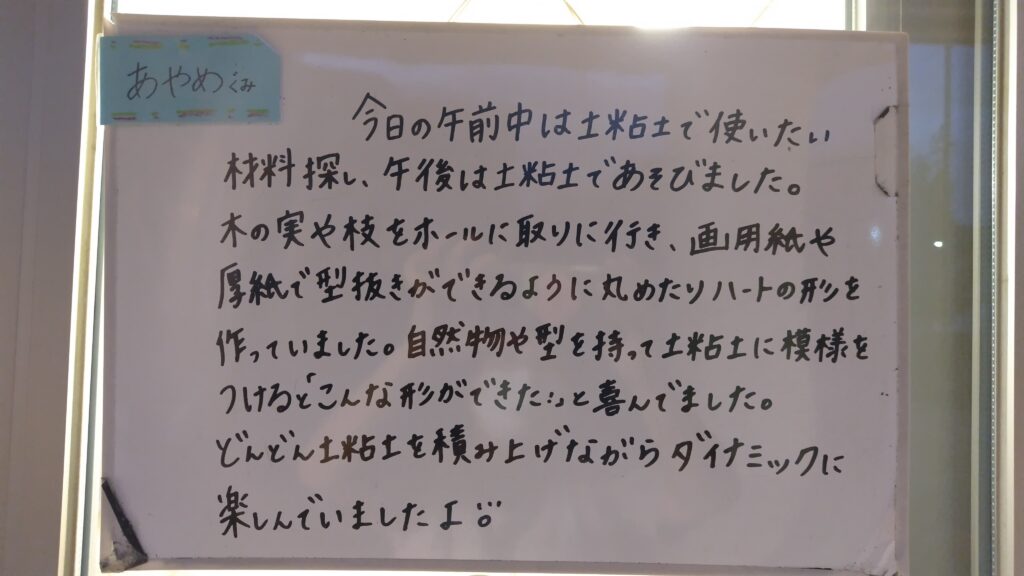 あやめぐみ
今日の午前中は土粘土で使いたい
材料探し、午後は土粘土であそびました。
木の実や枝をホールに取りに行き、画用紙や
厚紙で型抜きができるように丸めたりハートの形を
作っていました。自然物や型を持って土粘土に模様を
つけると「こんな形ができた!」と喜んでました。
どんどん土粘土を積み上げながらダイナミックに
楽しんでいましたよ